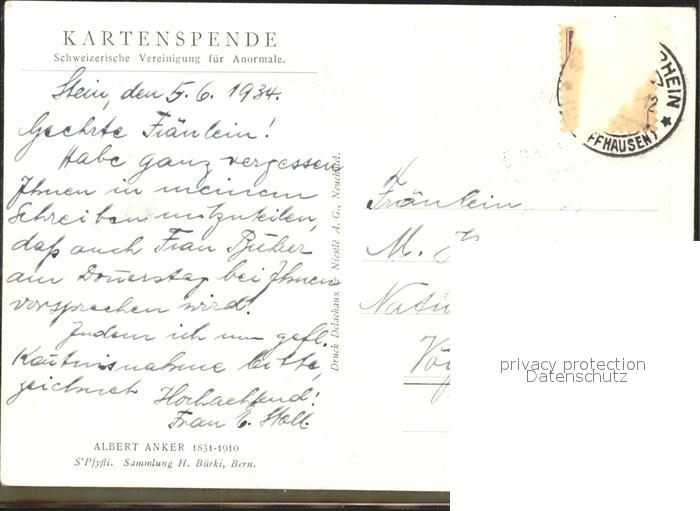 KARTENSPENDE
Schweizerische Vereinigung für Anormale.
Stein, den 5. 6. 1934.
Geehrte Fräulein!
Habe ganz vergessen
Ihnen in meinem
Schreiben mitzuteilen,
daß auch Frau
am Donerstag bei Ihnen
vorsprechen wird.
Indem ich um gefl.
Kentnisnahme bitte,
zeichnet Hochachtend!
Frau E. Stoll.
ALBERT ANKER 1831-1910
S'Pfyfli. Sammlung H. Bürki, Bern.
Druck Delachaux & Niestlé A. G., Neuchâtel.
RHEIN
FFHAUSEN)
Fräulein
M.
Natu
privacy protection
Datenschutz